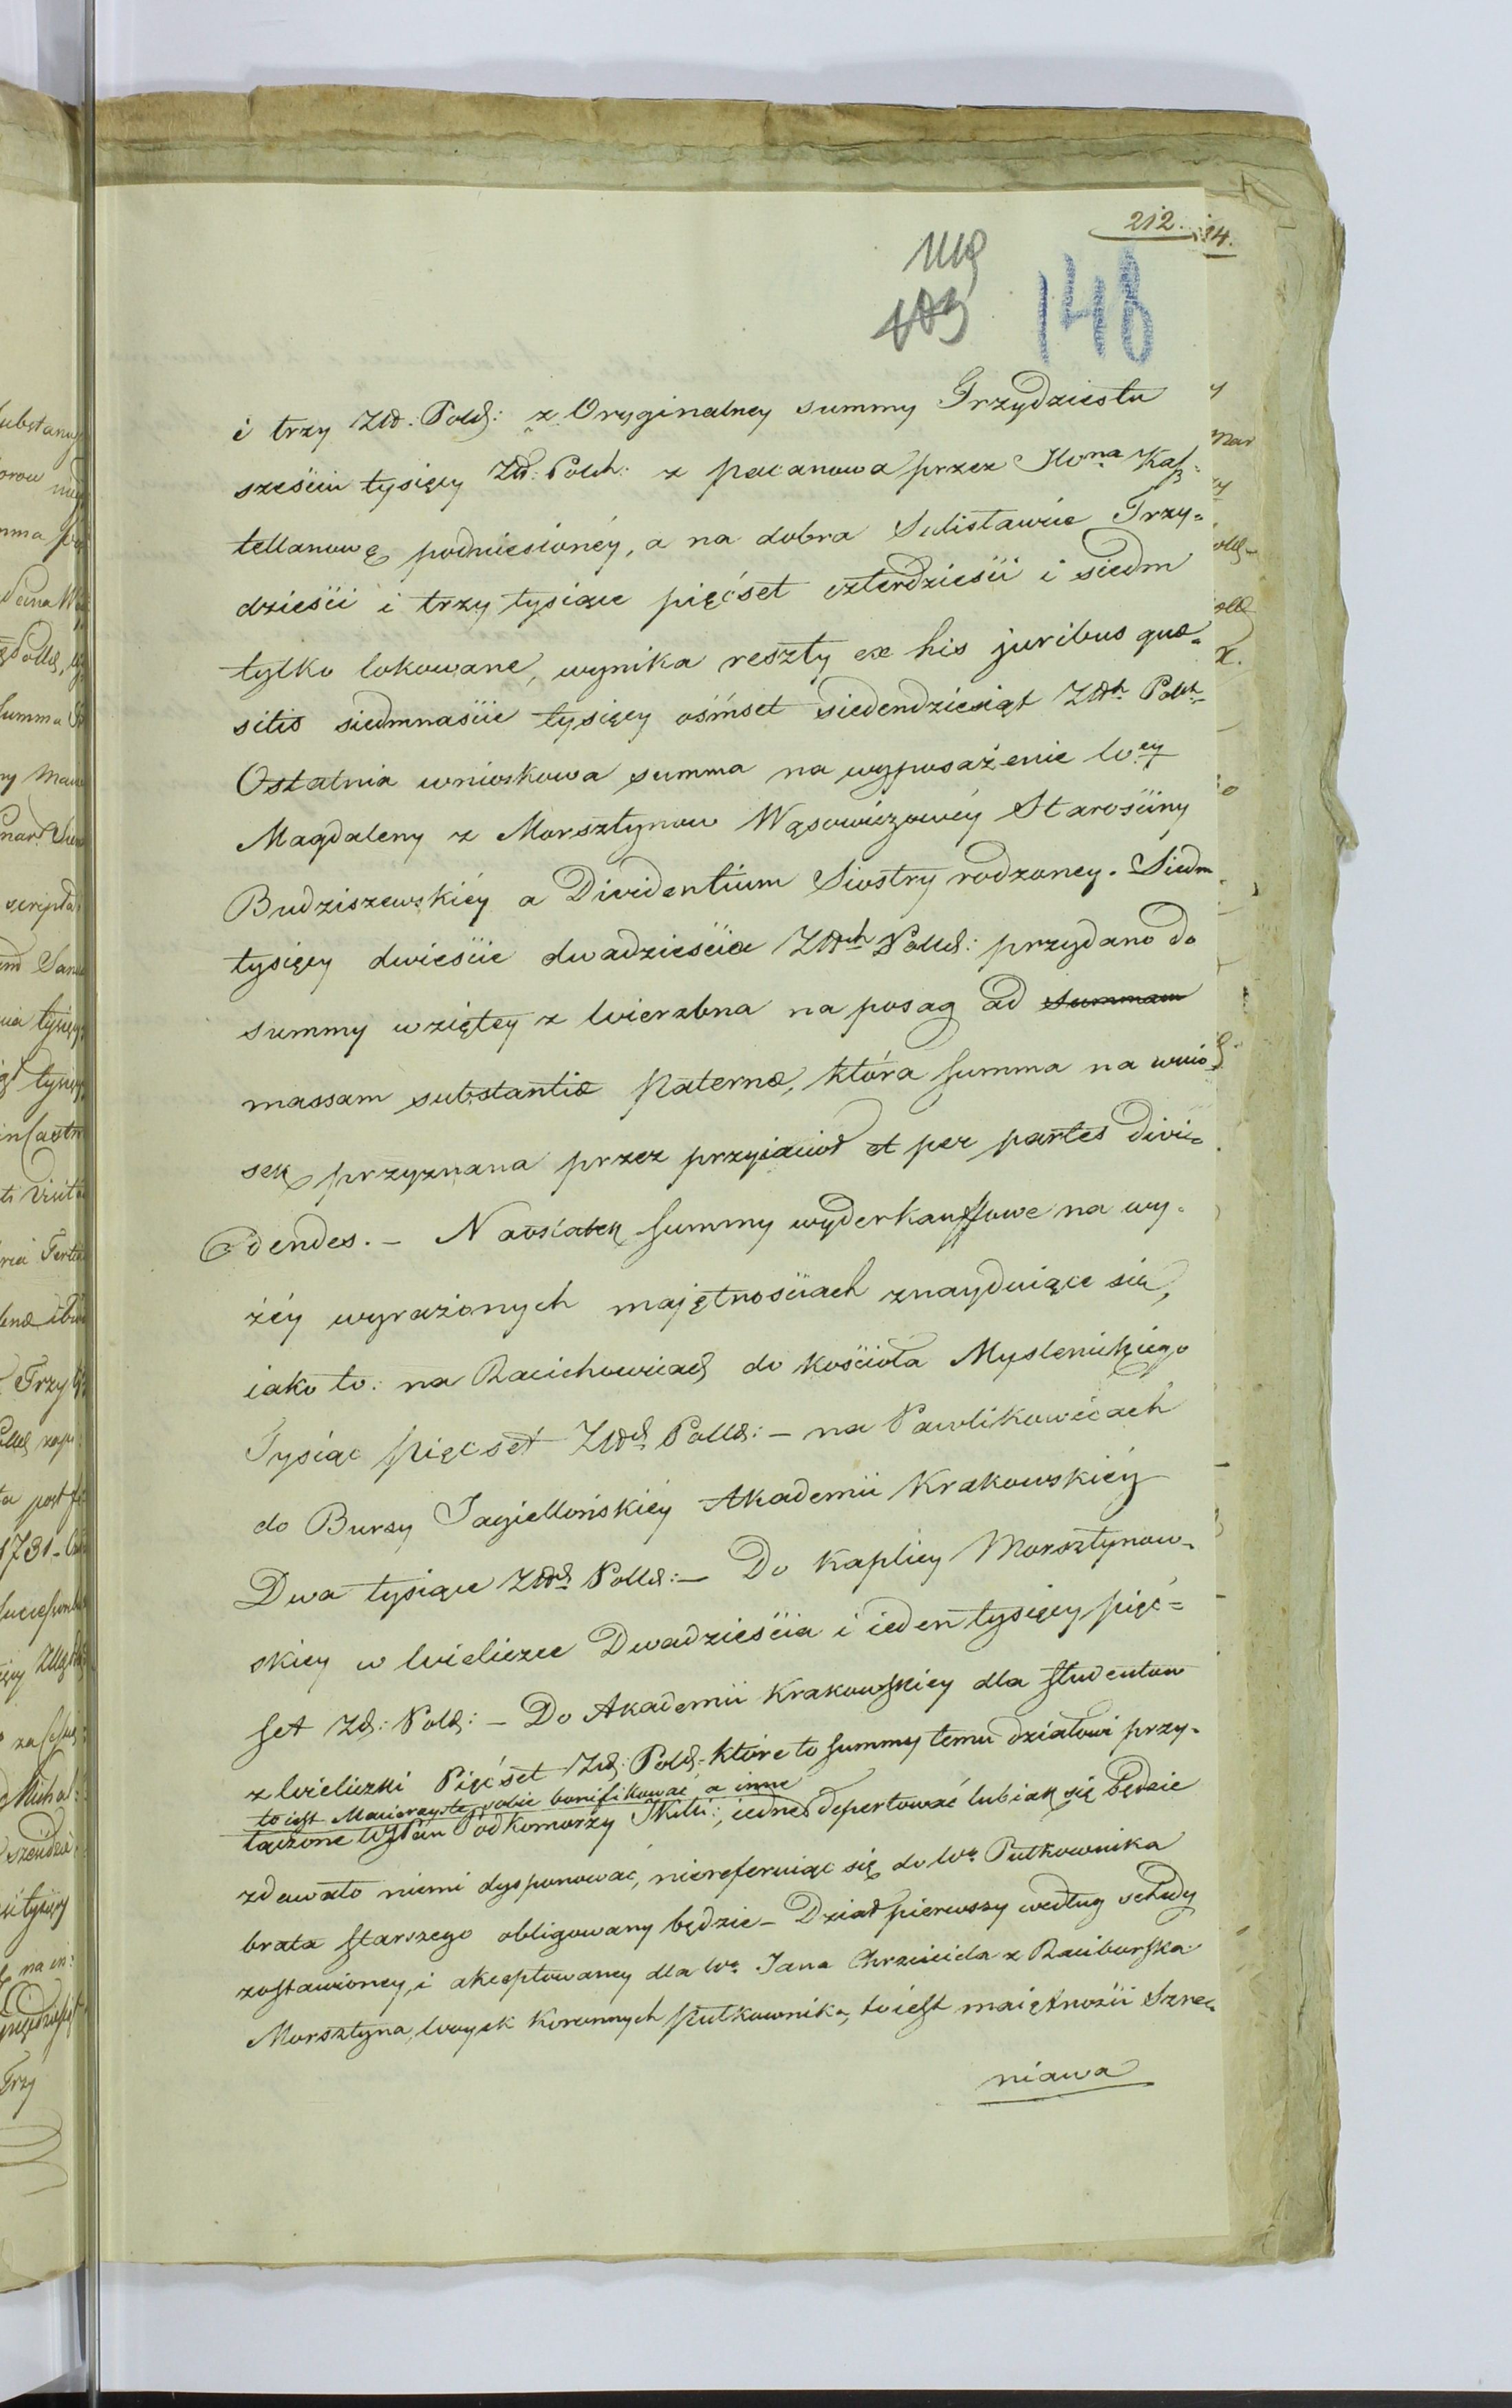 212.
148
i trzy Złł: Polch: z Oryginalney summy Trzydziestu
sześciu tysięcy Złł: Polch: z pacanowa przez JW<sup>na</sup> Kasz-
tellanowę podniesionéy, a na dobra Sulisławice Trzy-
dzieści i trzy tysiące pięćset czterdzieści i siedm
tylko lokowane, wynika reszty ex his juribus quæ-
sitis siedmnaście tysięcy ośmset siedendziesiąt Złłch Polch.
Ostatnia wnioskowa summa na wyposażenie W<sup>ey</sup>
Magdaleny z Morsztynow Wąsowiczowéy Starościny
Budziszewskiéy a Dividentium Siostry rodzoney. Siedm
tysięcy dwieście dwadzieścia Złłch Pollch: przydano do
summy wziętey z Wierzbna na posag ad summam
massam substantiæ Paternæ, która summa na wnio-
sek przyznana przez przyiaciół et per partes divi-
dendes. – Naostatek summy wyderkauffowe na wy-
żéy wyrażonych majętnościach znayduiące się,
iako to: na Raciechowicach do kościoła Myslenickiego
Tysiąc pięćset Złłch Pollch: – na Pawlikowicach
do Bursy Jagiellońskiéy Akademii Krakowskiéy
Dwa tysiące Złłch Pollch: – Do kaplicy Morsztynow-
skiey w Wieliczce Dwadzieścia i ieden tysięcy pięć=
set Zł: Polch: – Do Akademii Krakowskiey dla studentow
z Wieliczki Pięćset Złł: Polch – które to summy temu działowi przy-
to iest Macierzyste sobie bonifikować a inne
łączone WJPan Podkomorzy, iedne depertować lub iak się będzie
zdawało niemi dysponować, niereferuiąc się do W<sup>o</sup> Pułkownika
brata starszego obligowany będzie – Dział pierwszy według schedy
zostawioney, i akceptowaney dla W<sup>o</sup> Jana Chrzciciela z Raciborska
Morsztyna, Woysk Koronnych Pułkownika, to iest maiętności Szre-
niawa